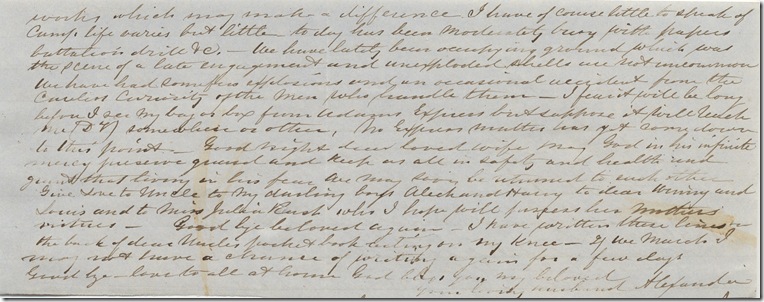 works which may make a difference I have of course little to speak of
Camp life varies but little to day has been moderately busy with papers
battalion drill &c. – We have lately been occupying ground which was
the scene of a late engagement and unexploded shells are not uncommon
We have had some explosions and an occasional accident from the
careless curiosity of the men who handle them – I fear it will be long
before I see my bag or box from Adams Express but suppose it will reach
me D.V. somewhere or other, No Express matter has yet come down
to this point – Good night dear loved wife may God in his infinite
mercy preserve guard and keep us all in safety and health and
grant that living in his fear we may soon be returned to each other
Give love to Uncle to my darling boys Aleck and Harry to dear Winny and
Louis and to Miss Julia Rush who I hope will possess her mothers
virtues – Good bye beloved again – I have written these lines on
the back of dear Uncles pocket book resting on my knee – If we march I
may not have a chance of writing again for a few days
Good bye – love to all at home God keep you my beloved
Your loving husband Alexander